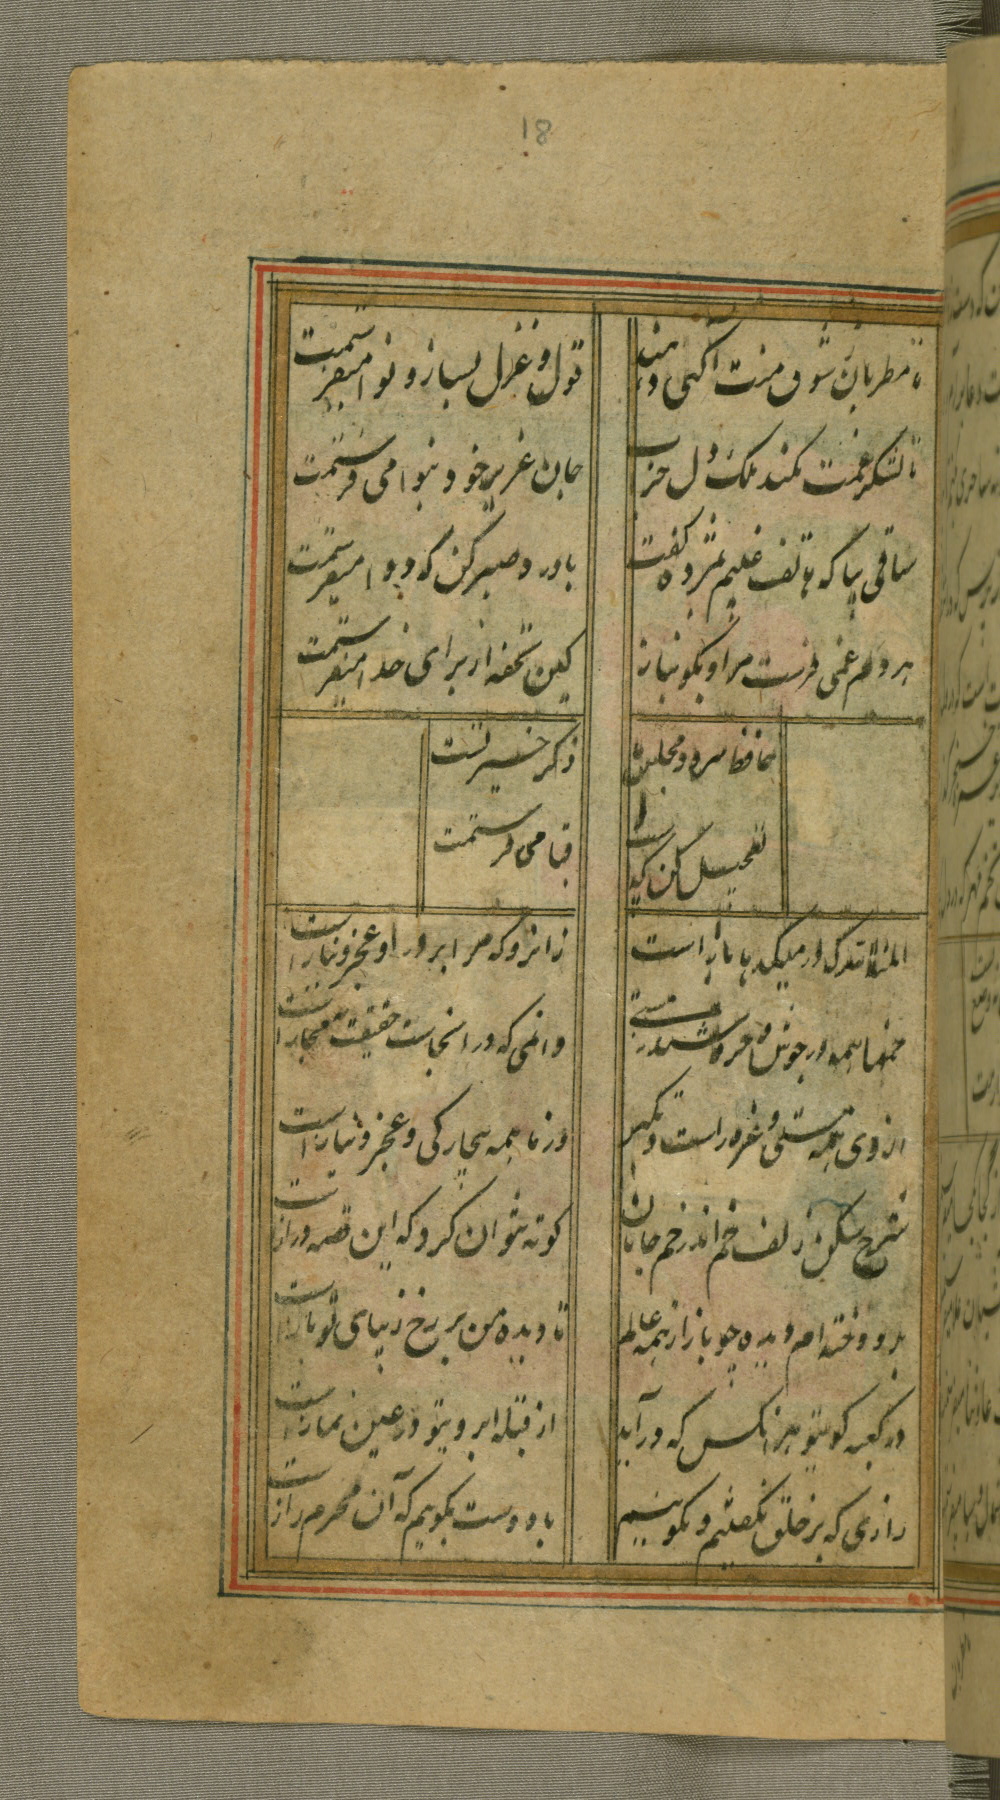 18
تا مطربان ز شوق منت آگهی دهند
قول و غزل بساز و نوا میفرستمت
تا لشکر غمت نکند ملک دل خراب
جان عزیز خود بنوا می فرستمت
ساقی بیا که هاتف غیبم بمژده گفت
با درد صبر کن که دوا میفرستمت
هر دم غمی فرست مرا و بکو بناز
کین تحفه از برای خدا میفرستمت
حافظ سرود مجلس ما
ذکر خیر تست
تعجیل کن که اسب و
قبا می فرستمت
المنة لله که در میکده باز است
زانرو که مرا بر در او عجز و نیاز است
خمها همه در جوش و خروشند ز مستی
وان می که در انجاست حقیقت نه مجاز است
از وی همه مستی و غرور است و تکبر
وز ما همه بیچارکی و عجز و نیاز است
شرح شکن زلف خم اندر خم جانان
کوته نتوان کرد که این قصه دراز است
بر دوخته ام دیده چو باز از همه عالم
تا دیده من بر رخ زیبای تو باز است
در کعبه کوی تو هر انکس که در آید
از قبله ابروی تو در عین نماز است
رازی که بر خلق نکفتیم و نکوییم
با دوست بکوییم که آن محرم راز است